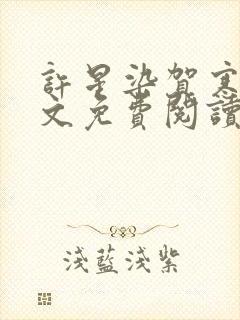 許星染賀寒
文免費閱讀
淺藍淺紫